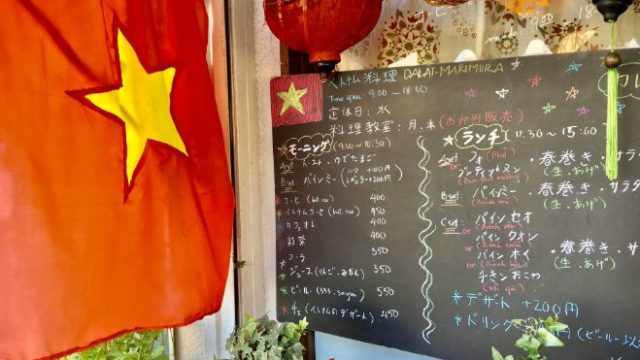 ベトナム料理 DALAT-MARIMURA
9:00〜18:00
定休日：水
料理教室：月.木 (お弁当販売)
モーニング (9:00〜10:30)
Aset トースト・ゆでたまご
Bset バインミー
コーヒー 400
ベトナムコーヒー 450
カフェオレ 400
紅茶 400
コーラ 350
ジュース 350
ビール (333, saigon) 550
チェ (ベトナムのデザート) 450
ランチ 11:30〜15:00
Aset フォー (Phở)
or
・春巻き・サラダ
(生.あげ)
Bset バインミー
・春巻き・サラ
(生.あげ)
Cset バインセオ
or バインクオン
or バインオイ
or チキンおこわ
・春巻き・サラダ
(生.あげ)
*デザート +200円
*ドリンク 円(ビール以